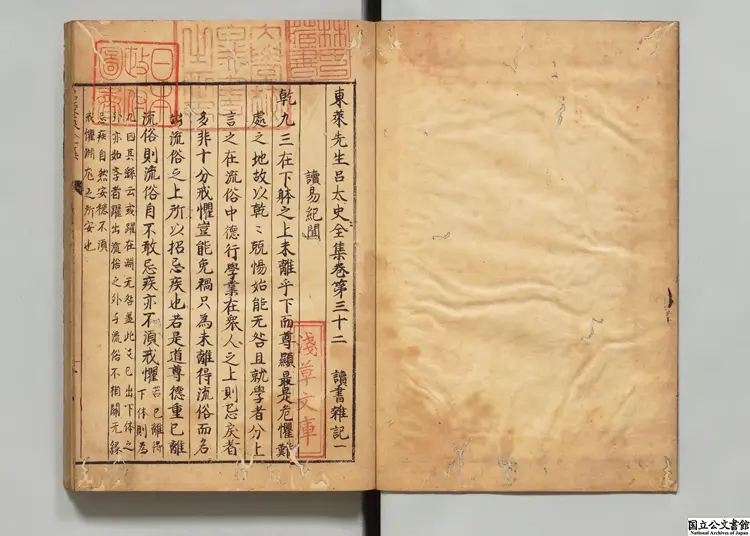 東萊先生呂太史全集卷第三十二 讀書雜記一
讀易紀聞
乾九三在下躰之上未離乎下而尊顯最是危懼難
處之地故以乾〻兢惕始能无咎且就學者分上
言之在流俗中德行學業在衆人之上則忌疾者
多非十分戒懼豈能免禍只為未離得流俗而名
出流俗之上所以招忌疾也若是道尊德重已離
流俗則流俗自不敢忌疾亦不湏戒懼 若已離得
下体則為
九四其繇云或躍在淵无咎蓋此爻已出下体之
外亦如學者躍出流俗之外于流俗不相關无緣
忌疾自然安穏不湏
戒懼淵尨之所安也
淺草文庫
日本
政府
圖書
林氏
藏書
国立公文書館
National Archives of Japan